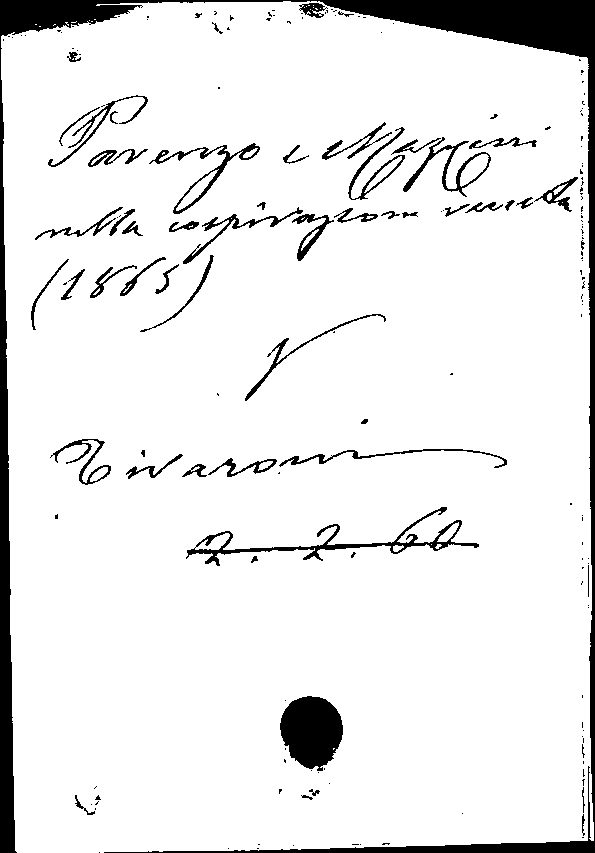 Parenzo e Mazzini
nella cospirazione veneta
(1865)
V
Tivaroni
2. 2. 60